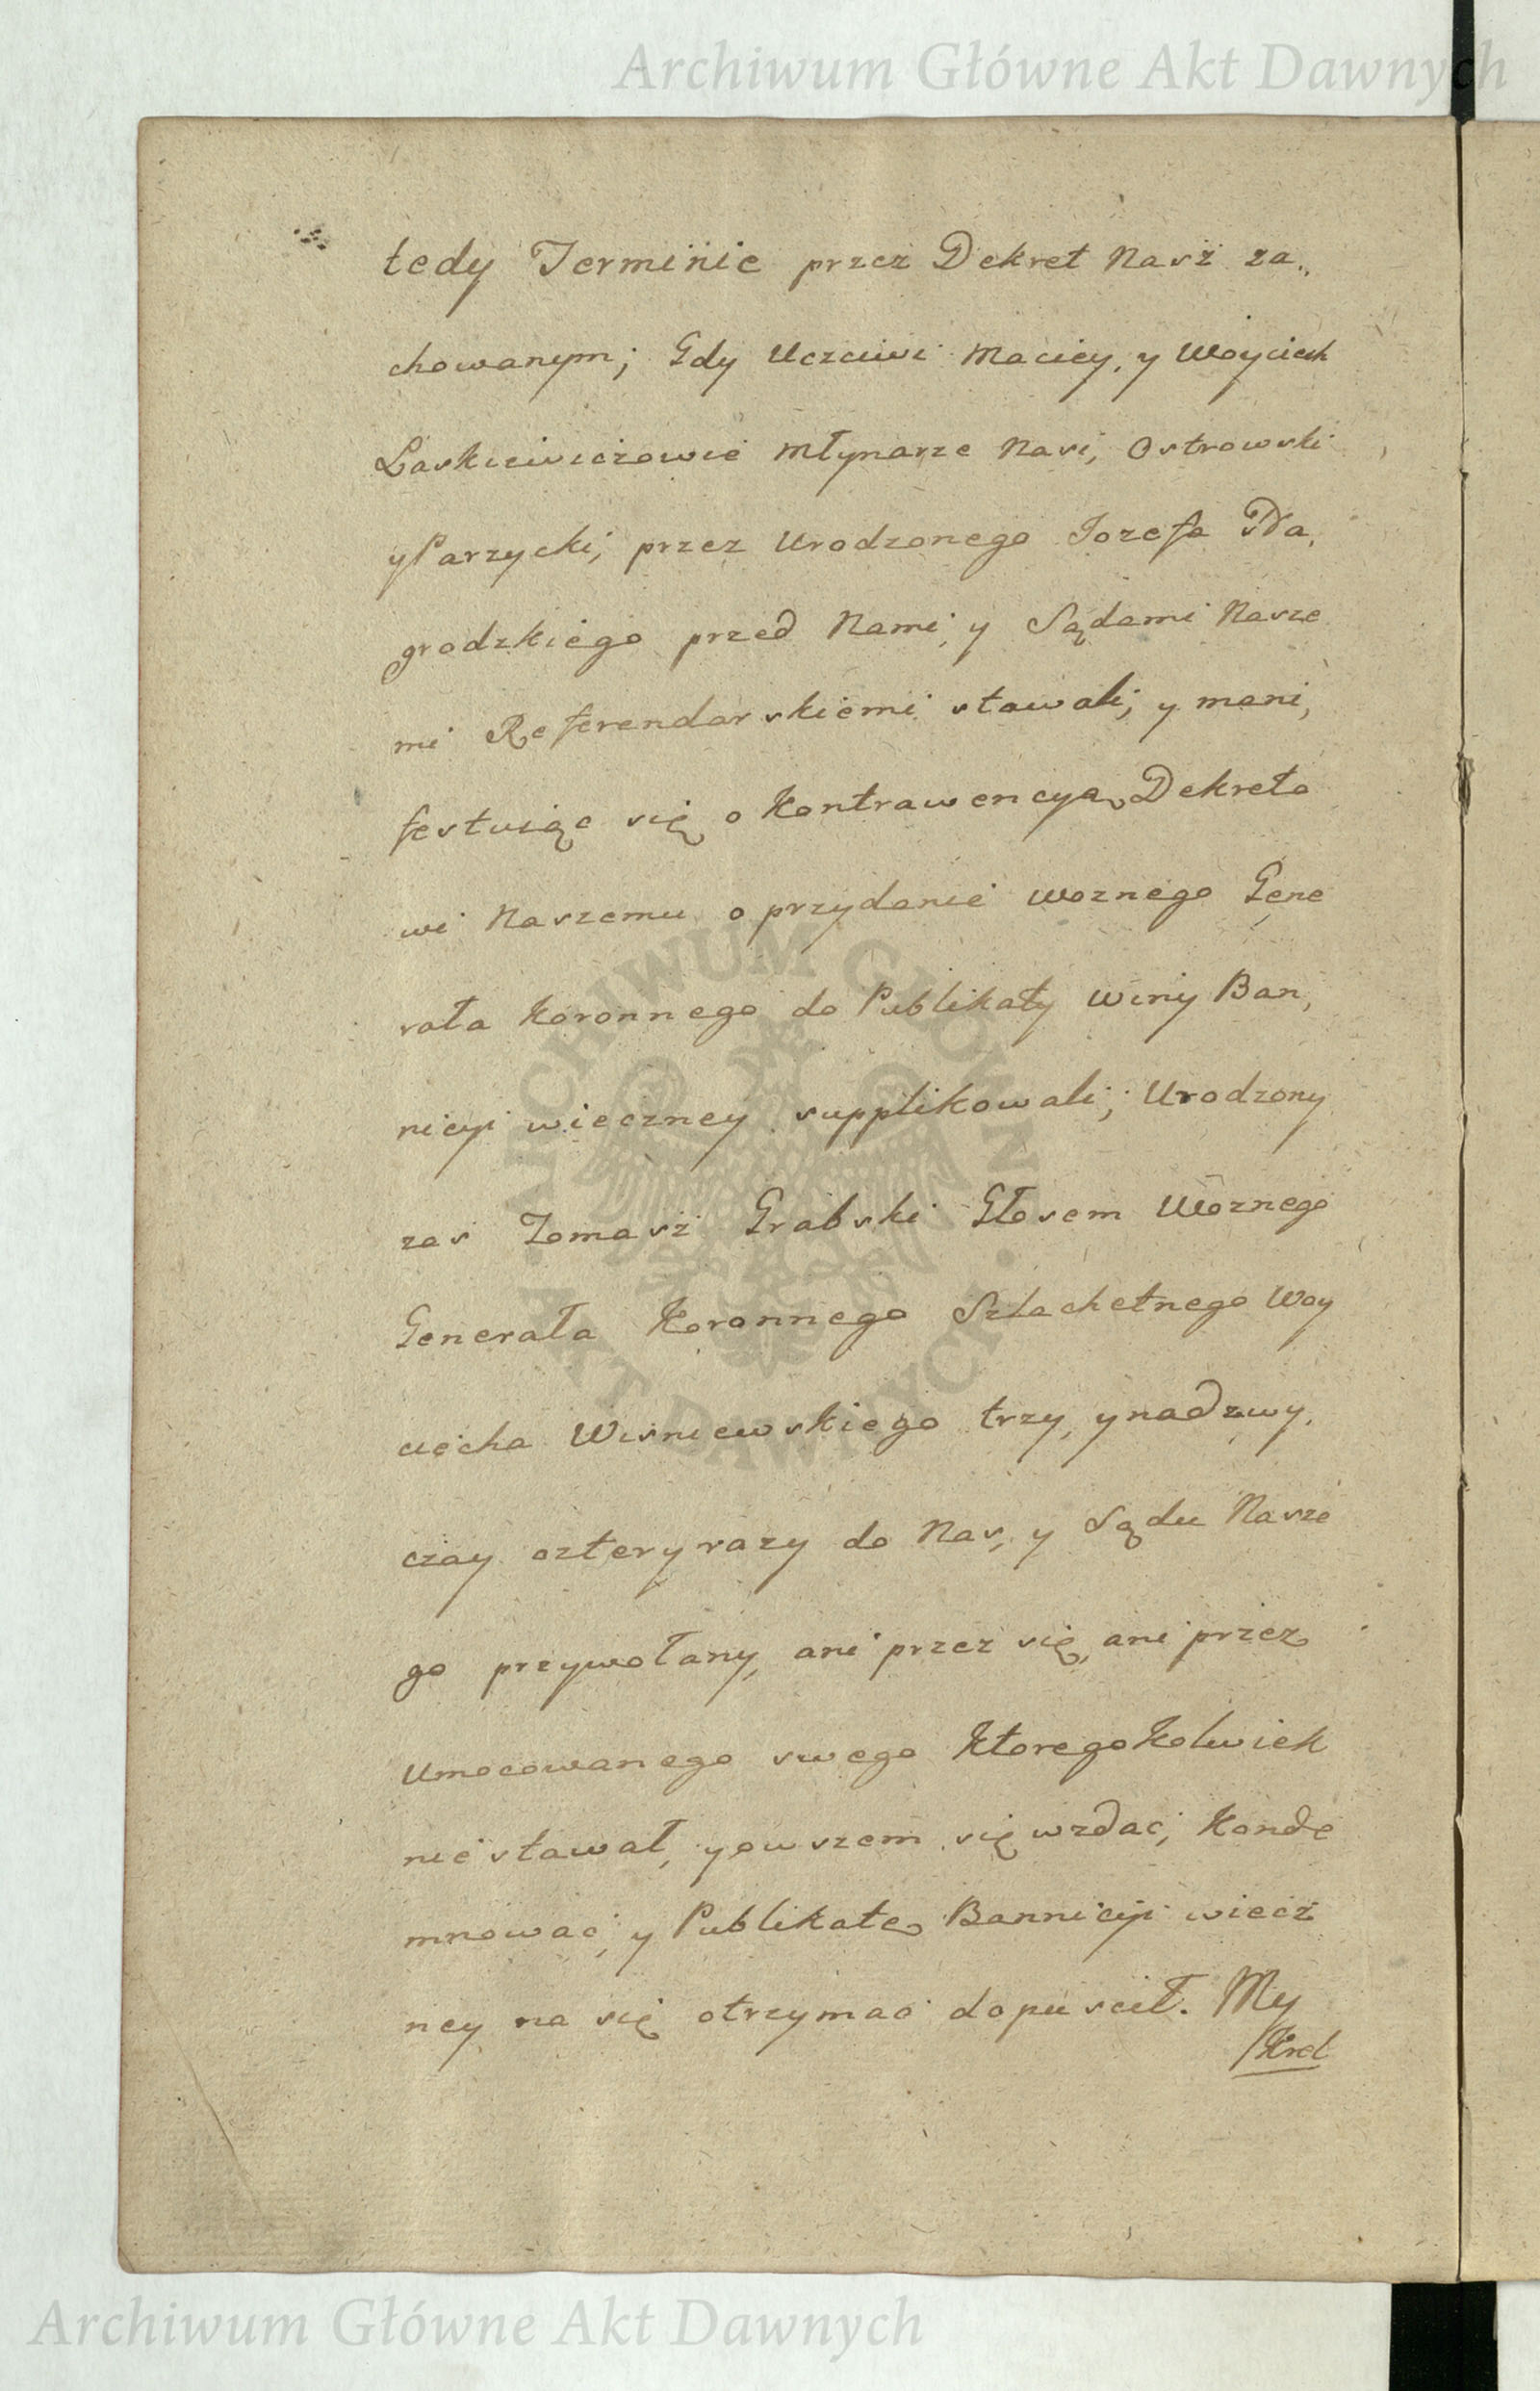 Archiwum Główne Akt Dawnych
tedy Terminie przez Dekret Nasz za„
chowanym; Gdy Uczciwi Maciey, y Woyciech
Laskiewiczowie Młynarze Nasi, Ostrowski
y Parzycki, przez Urodzonego Jozefa Na,
grodzkiego przed Nami, y Sądami Nasze
mi Referendarskiemi stawali; y mani,
festuiąc się o Kontrawencyą Dekreto
wi Naszemu o przydanie woznego Gene
rała Koronnego do Publikaty winy Ban,
nicyi wieczney supplikowali; Urodzony
zas Tomasz Grabski Głosem Woznego
Generała Koronnego Szlachetnego Woy
ciecha Wisniewskiego trzy, y nadzwy,
czay cztery razy do Nas, y Sądu Nasze
go przywołany, ani przez się, ani przez
Umocowanego swego Ktoregokolwiek
nie stawał, y owszem się wzdac, Konde
mnowac, y Publikatę Bannicyi wiecz
ney na się otrzymac dopuscił. My
Krol
ARCHIWUM GŁÓWNE AKT DAWNYCH
Archiwum Główne Akt Dawnych